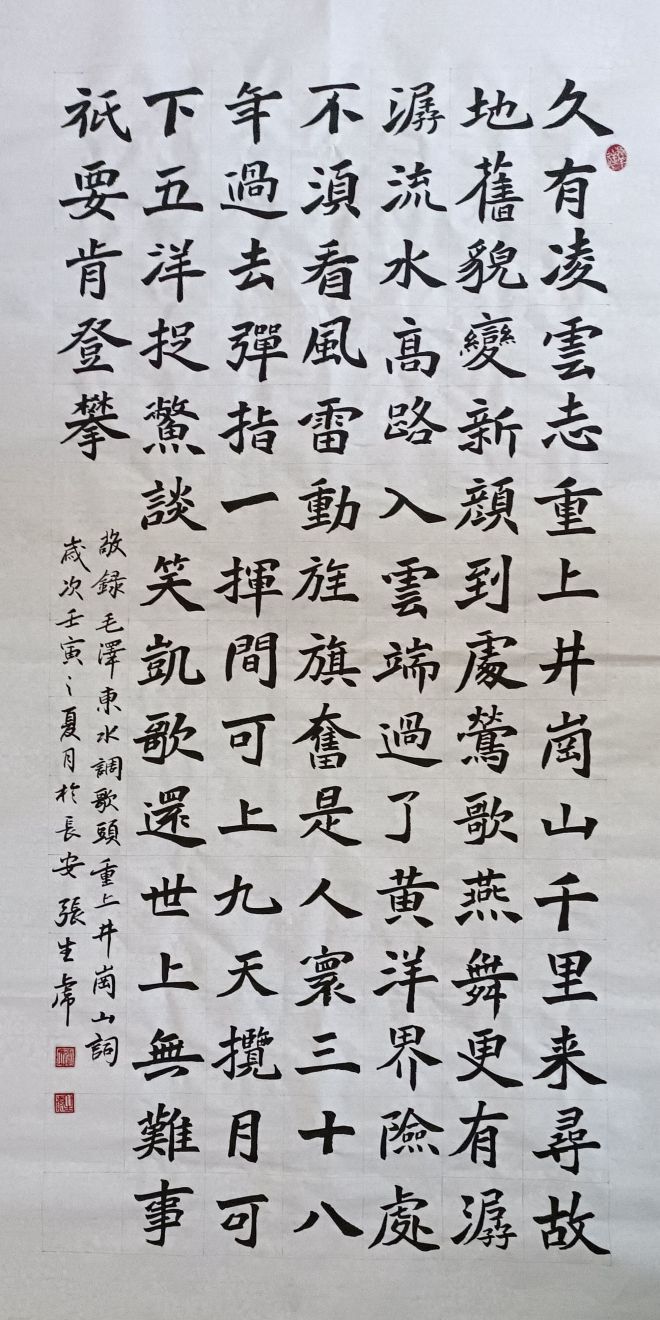 久有凌雲志重上井崗山千里来尋故
地舊貌變新顔到處鶯歌燕舞更有潺
潺流水高路入雲端過了黄洋界險處
不須看風雷動旌旗奮是人寰三十八
年過去彈指一揮間可上九天攬月可
下五洋捉鱉談笑凱歌還世上無難事
祇要肯登攀
敬録毛澤東水調歌頭重上井崗山詞
歲次壬寅之夏月於長安張生